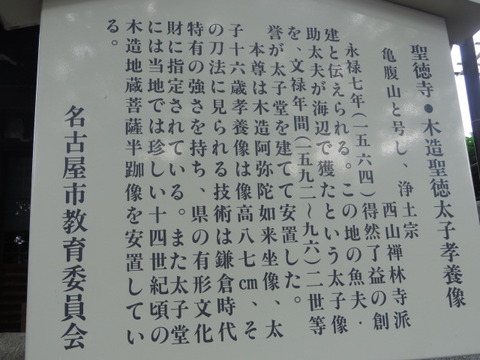 聖徳寺●木造聖徳太子孝養像
亀腹山と号し、浄土宗西山禅林寺派
永禄七年(一五六四)得然了益の創
建と伝えられる。この地の魚夫・
助太夫が海辺で獲たという太子像
を、文禄年間(一五九二〜九六)二世等
誉が太子堂を建てて安置した。
本尊は木造阿弥陀如来坐像、太
子十六歳孝養像は像高八七㎝、そ
の刀法に見られる技術は鎌倉時代
特有の強さを持ち、県の有形文化
財に指定されている。また太子堂
には当地では珍しい十四世紀頃の
木造地蔵菩薩半跏像を安置してい
る。
名古屋市教育委員会